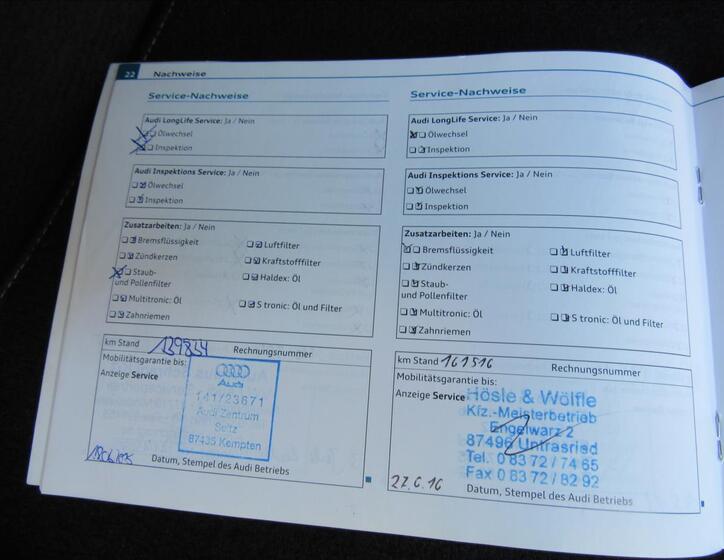 22 Nachweise
Service-Nachweise
Audi LongLife Service: Ja / Nein
Ölwechsel
Inspektion
Audi Inspektions Service: Ja / Nein
Ölwechsel
Inspektion
Zusatzarbeiten: Ja / Nein
Bremsflüssigkeit
Luftfilter
Zündkerzen
Kraftstofffilter
Staub-
und Pollenfilter
Haldex: Öl
Multitronic: Öl
S tronic: Öl und Filter
Zahnriemen
km Stand 139834 Rechnungsnummer
Mobilitätsgarantie bis:
Anzeige Service
Audi
141/23671
Audi Zentrum
Seitz
87435 Kempten
Datum, Stempel des Audi Betriebs
Service-Nachweise
Audi LongLife Service: Ja / Nein
Ölwechsel
Inspektion
Audi Inspektions Service: Ja / Nein
Ölwechsel
Inspektion
Zusatzarbeiten: Ja / Nein
Bremsflüssigkeit
Luftfilter
Zündkerzen
Kraftstofffilter
Staub-
und Pollenfilter
Haldex: Öl
Multitronic: Öl
S tronic: Öl und Filter
Zahnriemen
km Stand 161516 Rechnungsnummer
Mobilitätsgarantie bis:
Anzeige Service
Hösle & Wölfle
Kfz.-Meisterbetrieb
Engelwarz 2
87496 Untrasried
Tel. 0 83 72 / 74 65
Fax 0 83 72 / 82 92
27.6.16
Datum, Stempel des Audi Betriebs